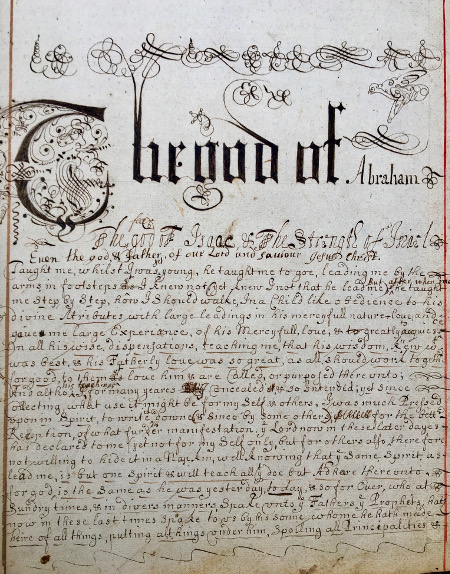 The god of Abraham
The god of Isaac & The Strength of Israel
Even the god & Father, of our Lord and saviour Jesus Christ.
Taught me, whilst I was young, he taught me to goe, leading me by the
arms in footsteps as I knew not yet knew I not that he lead me but after, when
me Step by Step, how I Should walke, In a Child like obedience to his
divine Attributes with large leadings in his mercyfull nature, Love and
gave me large Experience, of his Mercyfull, love, & to greatly
In all his wise, dispensations, teaching me, that his wisdom, knew wt
was best, & his Fatherly love was so great, as all should work togeth
for good, to them love him & are Called, or purposed thereunto;
And although for many years Concealed so Intended; yet Since
collecting, what use it might be for my Self & others, I was much Pressed
upon in Spirit, to write down & Since by Some other, for the
Reception, of what further manifestation, ye Lord now in these later dayes
hat declared to me, yet not for my Self only, but for others also, therefore
not willing to hide it in a Nay I well knowing that ye Same Spirit as
lead me, is but one Spirit & will teach all doe but Adhere thereunto,
for god, is the Same as he was yesterday, to day, & so for Ever, who at
Sundry times, & in divers manners, Spake unto ye Fathers, ye Prophets, hat
now in these last times Spake to us by his Son, whome he hath made
heire of all things, putting all things under him, Spoiling all Principalities &